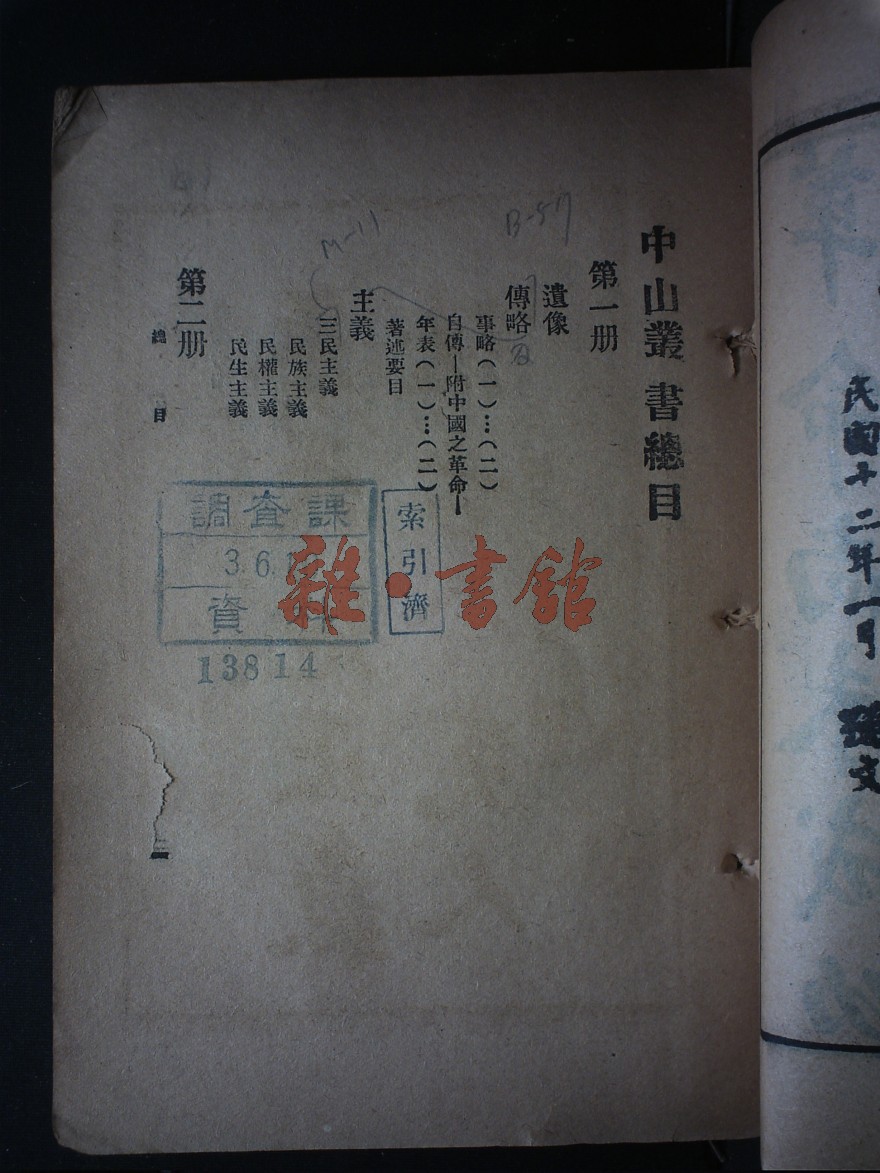 中山叢書總目
第一册
遺像
傳略
事略（一）…（二）
自傳—附中國之革命—
年表（一）…（二）
著述要目
主義
三民主義
民族主義
民權主義
民生主義
第二册
總目
一
M-11
B-57
調查課
3.6.1
資料
13814
索引濟
雜·書館
民國十二年一月
孫文